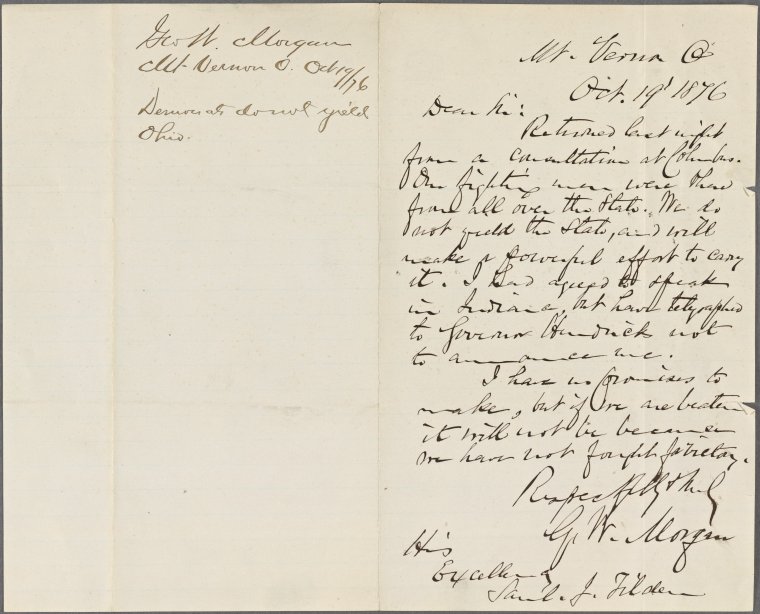 Geo W. Morgan
Mt. Vernon O. Oct 19/76
Democrats do not yield
Ohio.
Mt. Vernon O.
Oct. 19' 1876
Dear Sir:
Returned last night
from a consultation at Columbus.
Our fighting men were there
from all over the State. We do
not yield the State, and will
make a powerful effort to carry
it. I had agreed to speak
in Indiana, but have telegraphed
to Governor Hendrick not
to announce me.
I have no promises to
make, but if we are beaten
it will not be because
we have not fought for victory.
Respectfully & truly
G. W. Morgan
His
Excellency
Saml. J. Tilden